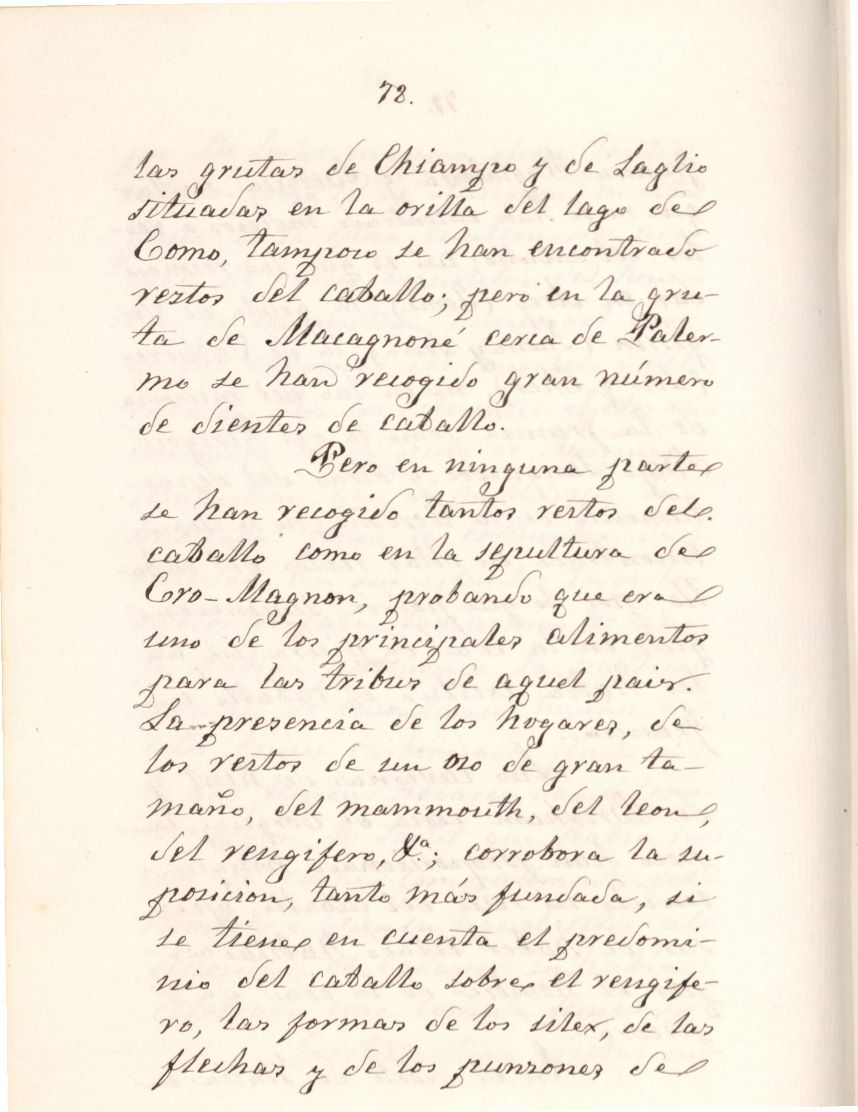 72.
las grutas de Chiampo y de Laglio
situadas en la orilla del lago de
Como, tampoco se han encontrado
restos del caballo; pero en la gru-
ta de Macagnoné cerca de Paler-
mo se han recogido gran número
de dientes de caballo.
Pero en ninguna parte
se han recogido tantos restos del
caballo como en la sepultura de
Cro-Magnon, probando que era
uno de los principales alimentos
para las tribus de aquel pais.
La presencia de los hogares, de
los restos de un oso de gran ta-
maño, del mammouth, del leon,
del rengifero, &ª.; corrobora la su-
posicion, tanto más fundada, si
se tiene en cuenta el predomi-
nio del caballo sobre el rengife-
ro, las formas de los silex, de las
flechas y de los punzones de